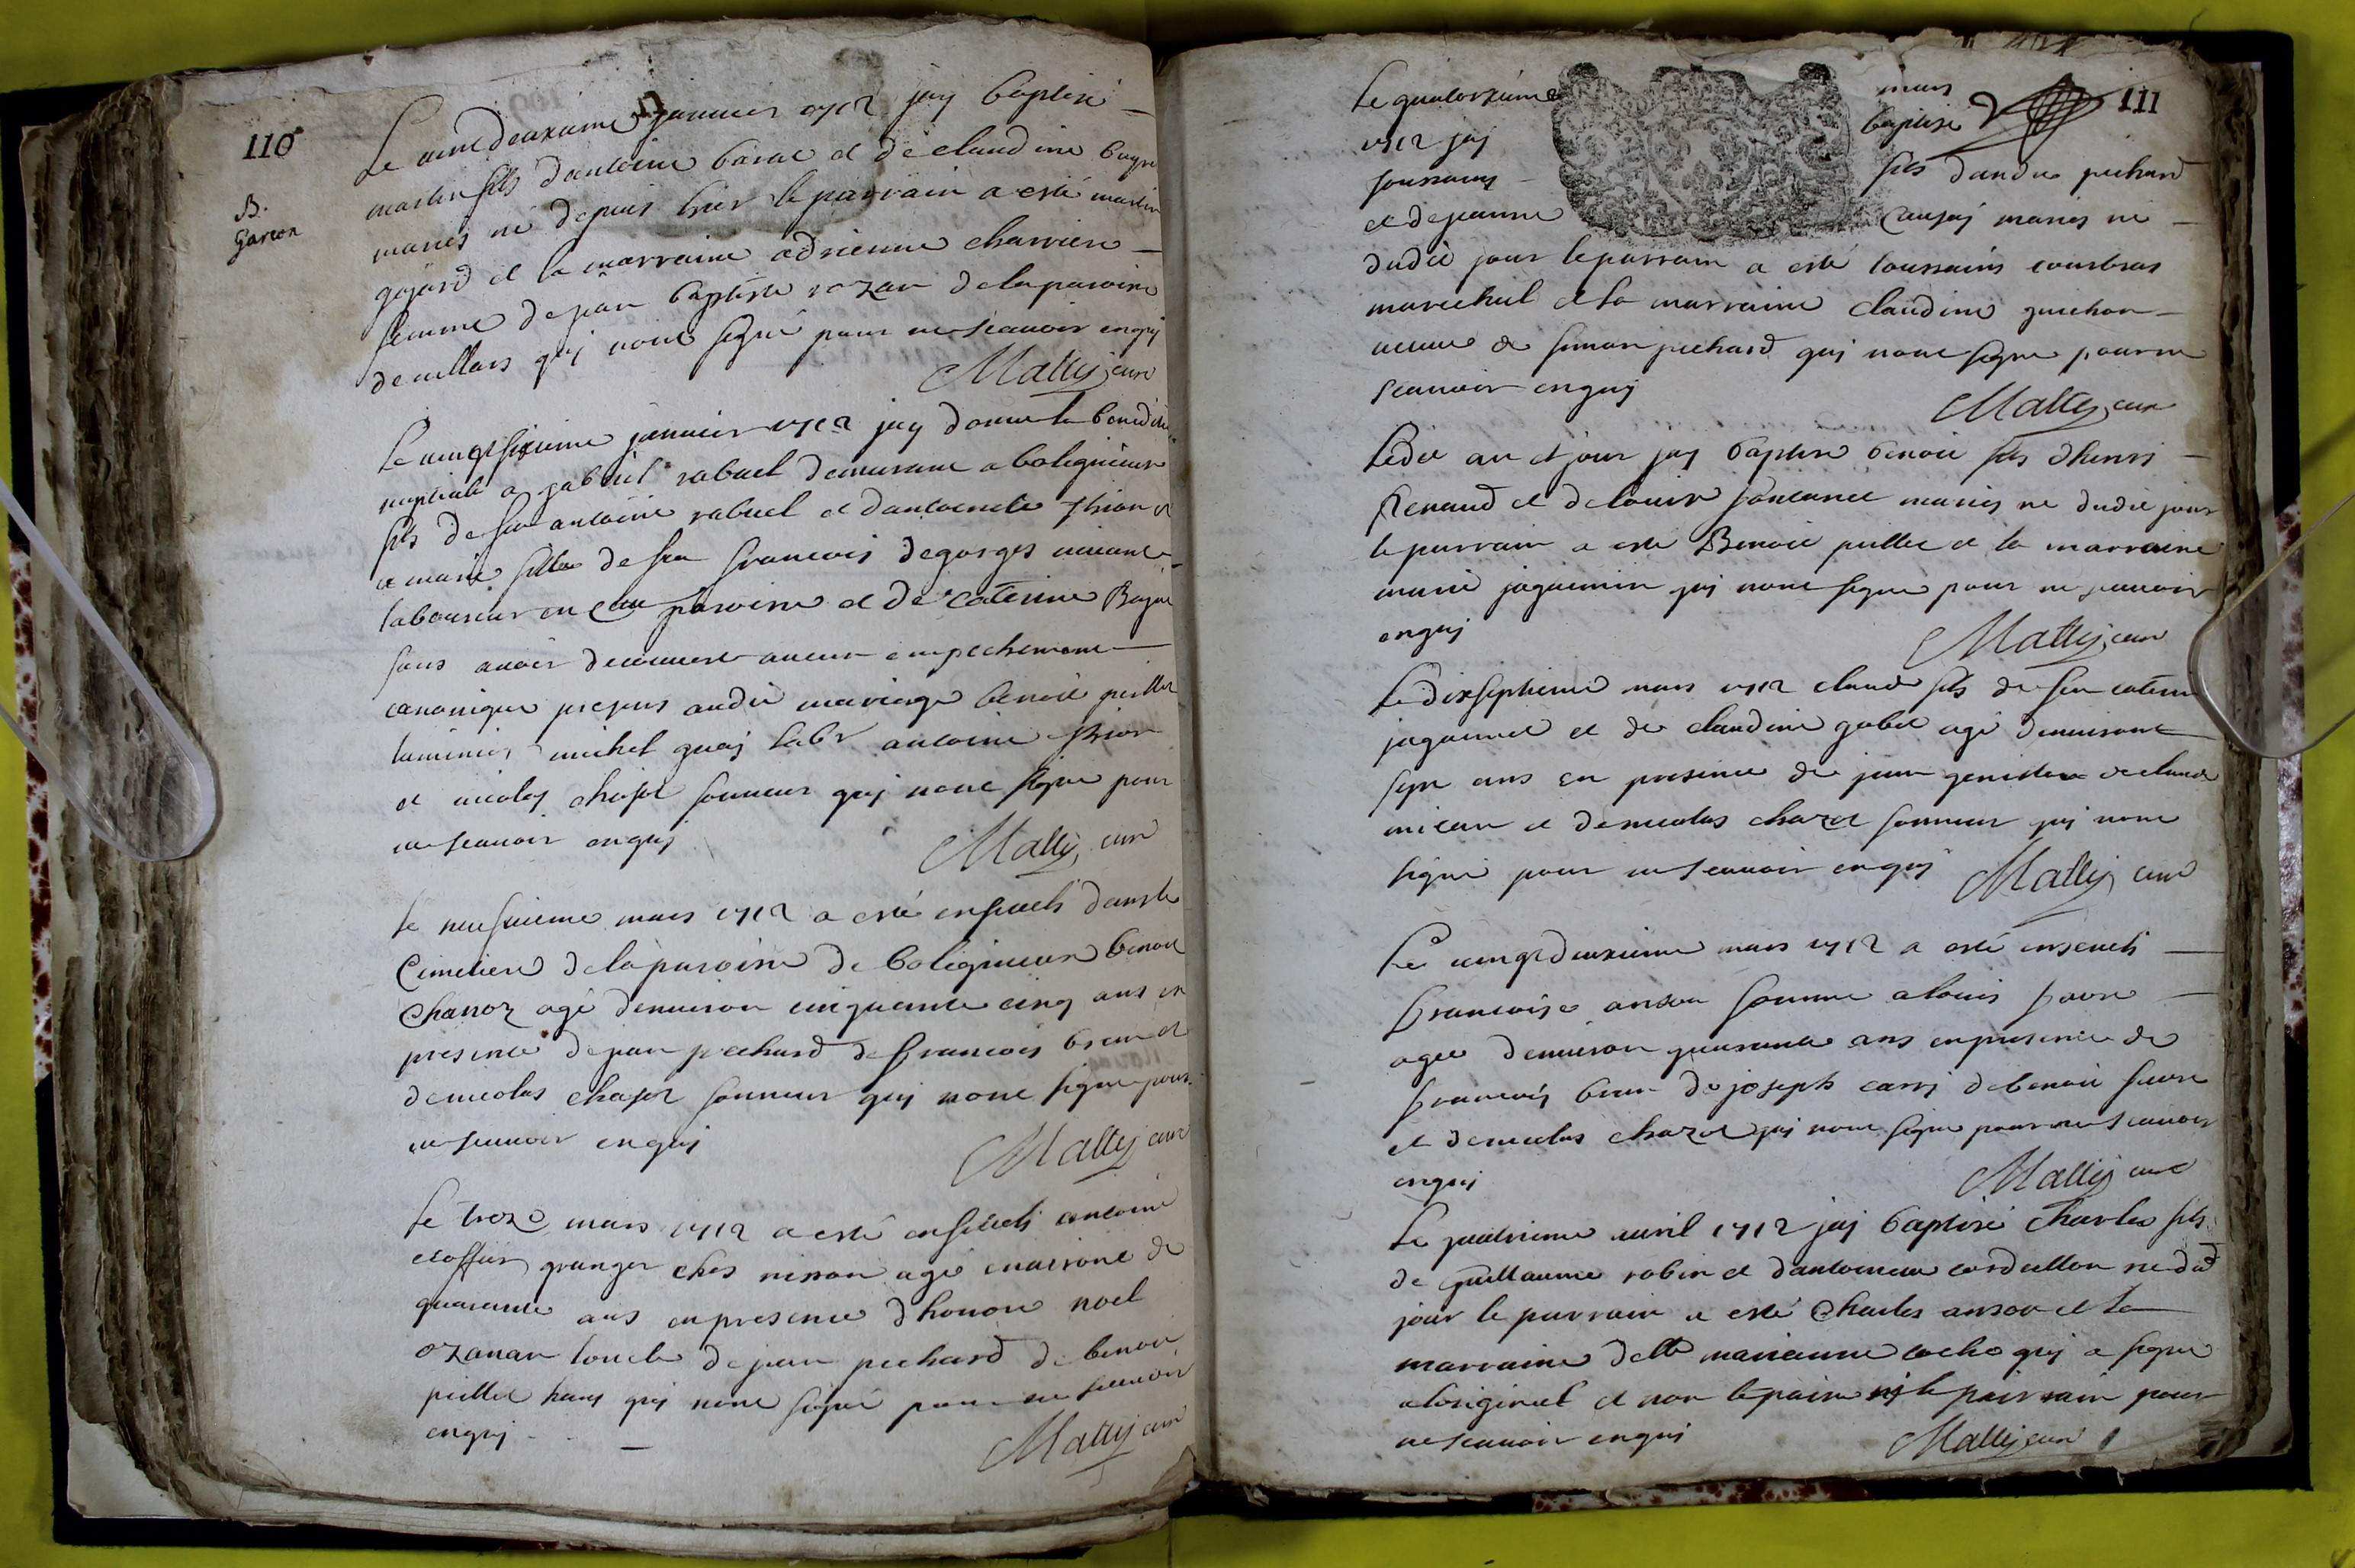 110
B.
garcon
Le vint deuxieme januier 1712 jay baptisé
martin fils dantoine barat et de claudine
mariés né depuis hier le parrain a esté martin
gojard et la marraine adrienne charriere
femme de jean baptiste rozan de la paroisse
de uillars quj nont signé pour ne scauoir enquis
Mattij curé
Le uingt sixieme januier 1712 jay donné la benedi
nuptiale a gabriel rabuel demeurant a boligneux
fils de feu antoine rabuel et dantoinette thion
et marie fille de feu francois degorges uiuant
laboureur en cette paroisse et de caterine
sans auoir decouuert aucun empechement
canonique presens audit mariage benoit peillet
luminier michel guaj labr antoine thion
et nicolas chasot sonneur quj nont signe pour
ne scauoir enquis
Mattij curé
Le neufuieme mars 1712 a esté enseueli dans le
cimetiere de la paroisse de boligneux benoit
Chanoz agé denuiron cinquante cinq ans en
presence de jean pechard de francois brun et
de nicolas chasot sonneur quj nont signe pour
ne scauoir enquis
Mattij curé
Le treze mars 1712 a esté enseueli antoine
granger ches nisson agé enuiront de
quarante ans en presence dhonoré noel
ozanan de jean pechard de benoit
peillet quj nont signé pour ne scauoir
enquis
Mattij curé
111
Le quatorzieme mars
1712 jay baptisé
toussains fils dandre pechard
et de jeanne mariés né
dudit jour le parrain a esté toussains courtras
marechal et la marraine claudine guichon
ueuue de simon pechard quj nont signe pour ne
scauoir enquis
Mattij curé
Ledit an et jour jay baptisé benoit fils dhenri
Renaud et de louise fontanel mariés né dudit jour
le parrain a esté Benoit peillet et la marraine
marie jaquemin quj nont signe pour ne scauoir
enquis
Mattij curé
Le dixseptieme mars 1712 claude fils de feu
jaquemet et de claudine gobet agé denuiront
sept ans en presence de jean de claude
et de nicolas chazot sonneur quj nont
signé pour ne scauoir enquis Mattij curé
Le uingt deuxieme mars 1712 a esté enseueli
francoise anson femme a louis faure
agée denuiron quarante ans en presence de
francois brun de joseph carrj de benoit faure
et de nicolas chazot quj nont signe pour ne scauoir
enquis
Mattij curé
Le quatrieme auril 1712 jay baptisé Charles fils
de guillaume robin et dantoinette cordellon né dud
jour le parrain a esté Charles anson et la
marraine delle marianne coche quj a signe
a loriginal et non le paire nj le parrain pour
ne scauoir enquis
Mattij curé